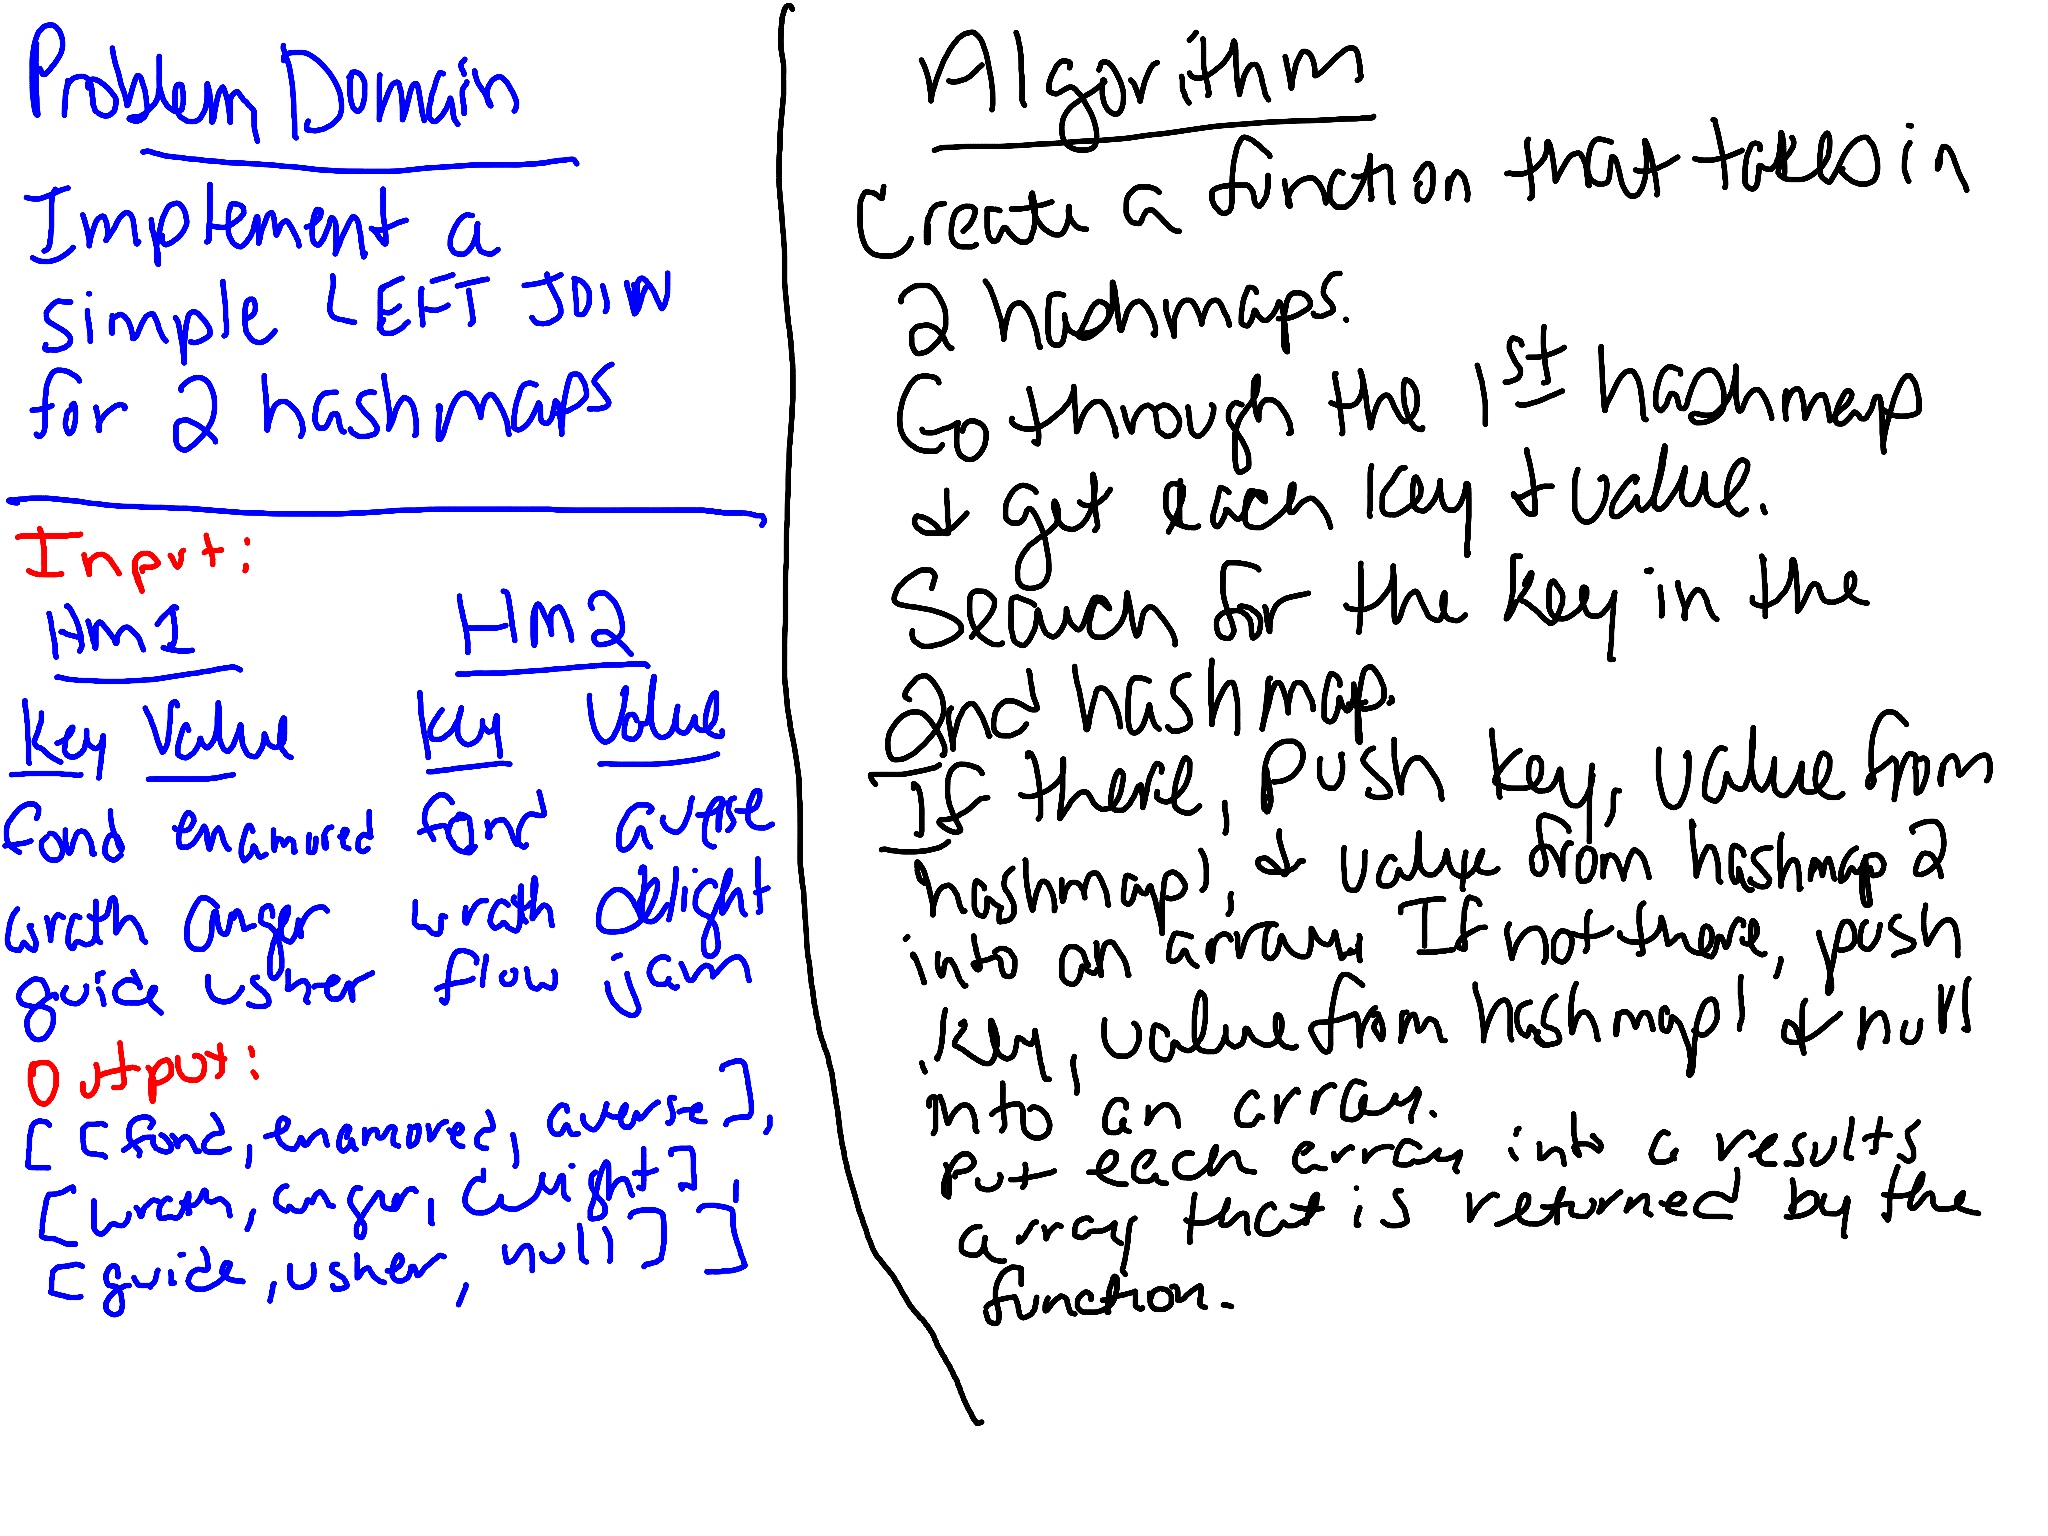 Problem Domain
Implement a
simple LEFT JOIN
for 2 hashmaps
Input:
Hm1 Hm2
Key Value Key Value
fond enamored fond averse
wrath anger wrath delight
guide usher flow jam
Output:
[ [fond, enamored, averse],
[wrath, anger, delight],
[guide, usher, null] ]
Algorithm
Create a function that takes in
2 hashmaps.
Go through the 1st hashmap
& get each key & value.
Search for the key in the
2nd hashmap.
If there, push key, value from
hashmap1, & value from hashmap 2
into an array. If not there, push
key, value from hashmap1 & null
into an array.
Put each array into a results
array that is returned by the
function.